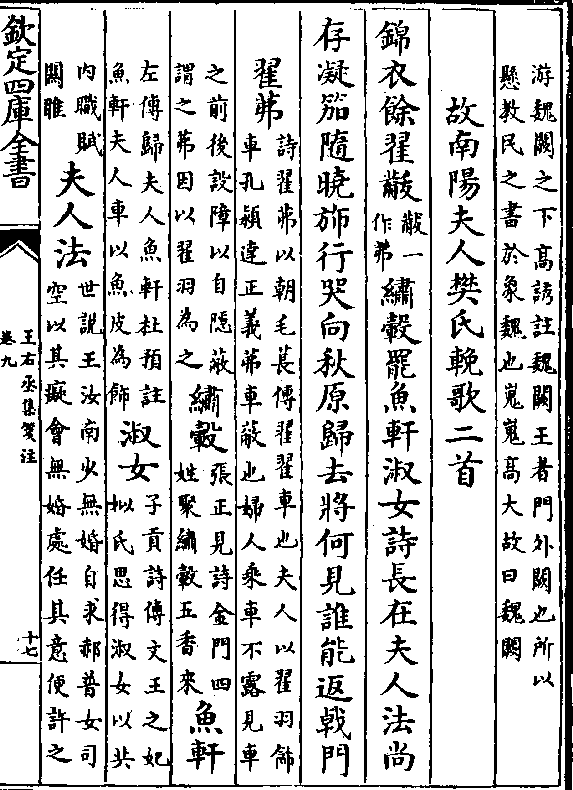 游魏闕之下高誘註魏闕王者門外闕也所以
懸教民之書於象魏也嵬嵬高大故曰魏闕
故南陽夫人樊氏輓歌二首
錦衣餘翟黻黻一作茀繡轂罷魚軒淑女詩長在夫人法尚
存凝笳隨曉斾行哭向秋原歸去將何見誰能返㦸門
翟茀詩翟茀以朝毛萇傳翟翟車也夫人以翟羽飾
車孔穎達正義茀車蔽也婦人乘車不露見車
之前後設障以自隱蔽
謂之茀因以翟羽為之繡轂張正見詩金門四
姓聚繡轂五香來魚軒
左傳歸夫人魚軒杜預註
魚軒夫人車以魚皮為飾淑女子貢詩傳文王之妃
姒氏思得淑女以共
内職賦
關雎夫人法世説王汝南少無婚自求郝普女司
空以其癡會無婚處任其意便許之
欽定四庫全書
王右丞集箋注
卷九
十七